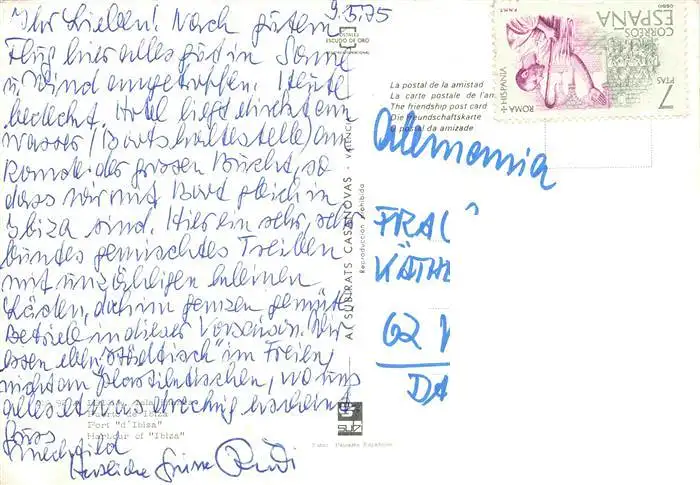 9.5.75
Ihr Lieben! Nach gutem
Flug hier alles gut in Sonne
u. Wind angetroffen. Heute
bedeckt. Hotel liegt direkt am
Wasser (Bootshaltestelle) am
Rande der grossen Bucht, so
dass wir mit Boot gleich in
Ibiza sind. Hier ein sehr, sehr
buntes gemischtes Treiben
mit unzähligen kleinen
Läden, doch im ganzen gemütl.
Betrieb in dieser Vorsaison. Wir
essen eben "städtisch" im Freien,
nicht an Plastiktischen, wo uns
alles etwas dreckig erscheint
Herzliche Grüsse Rudi
Port "d'Ibiza"
Harbour of "Ibiza"
POSTALES
ESCUDO DE ORO
A. SUBIRATS CASANOVAS - VALENCIA
Reproducción prohibida
La postal de la amistad
La carte postale de l'am
The friendship post card
Die Freundschaftskarte
O postal da amizade
CORREOS
ESPAÑA
7
PTAS
ROMA + HISPANIA
F.N.M.T.
Alemania
FRA
KÄTH
62
DA